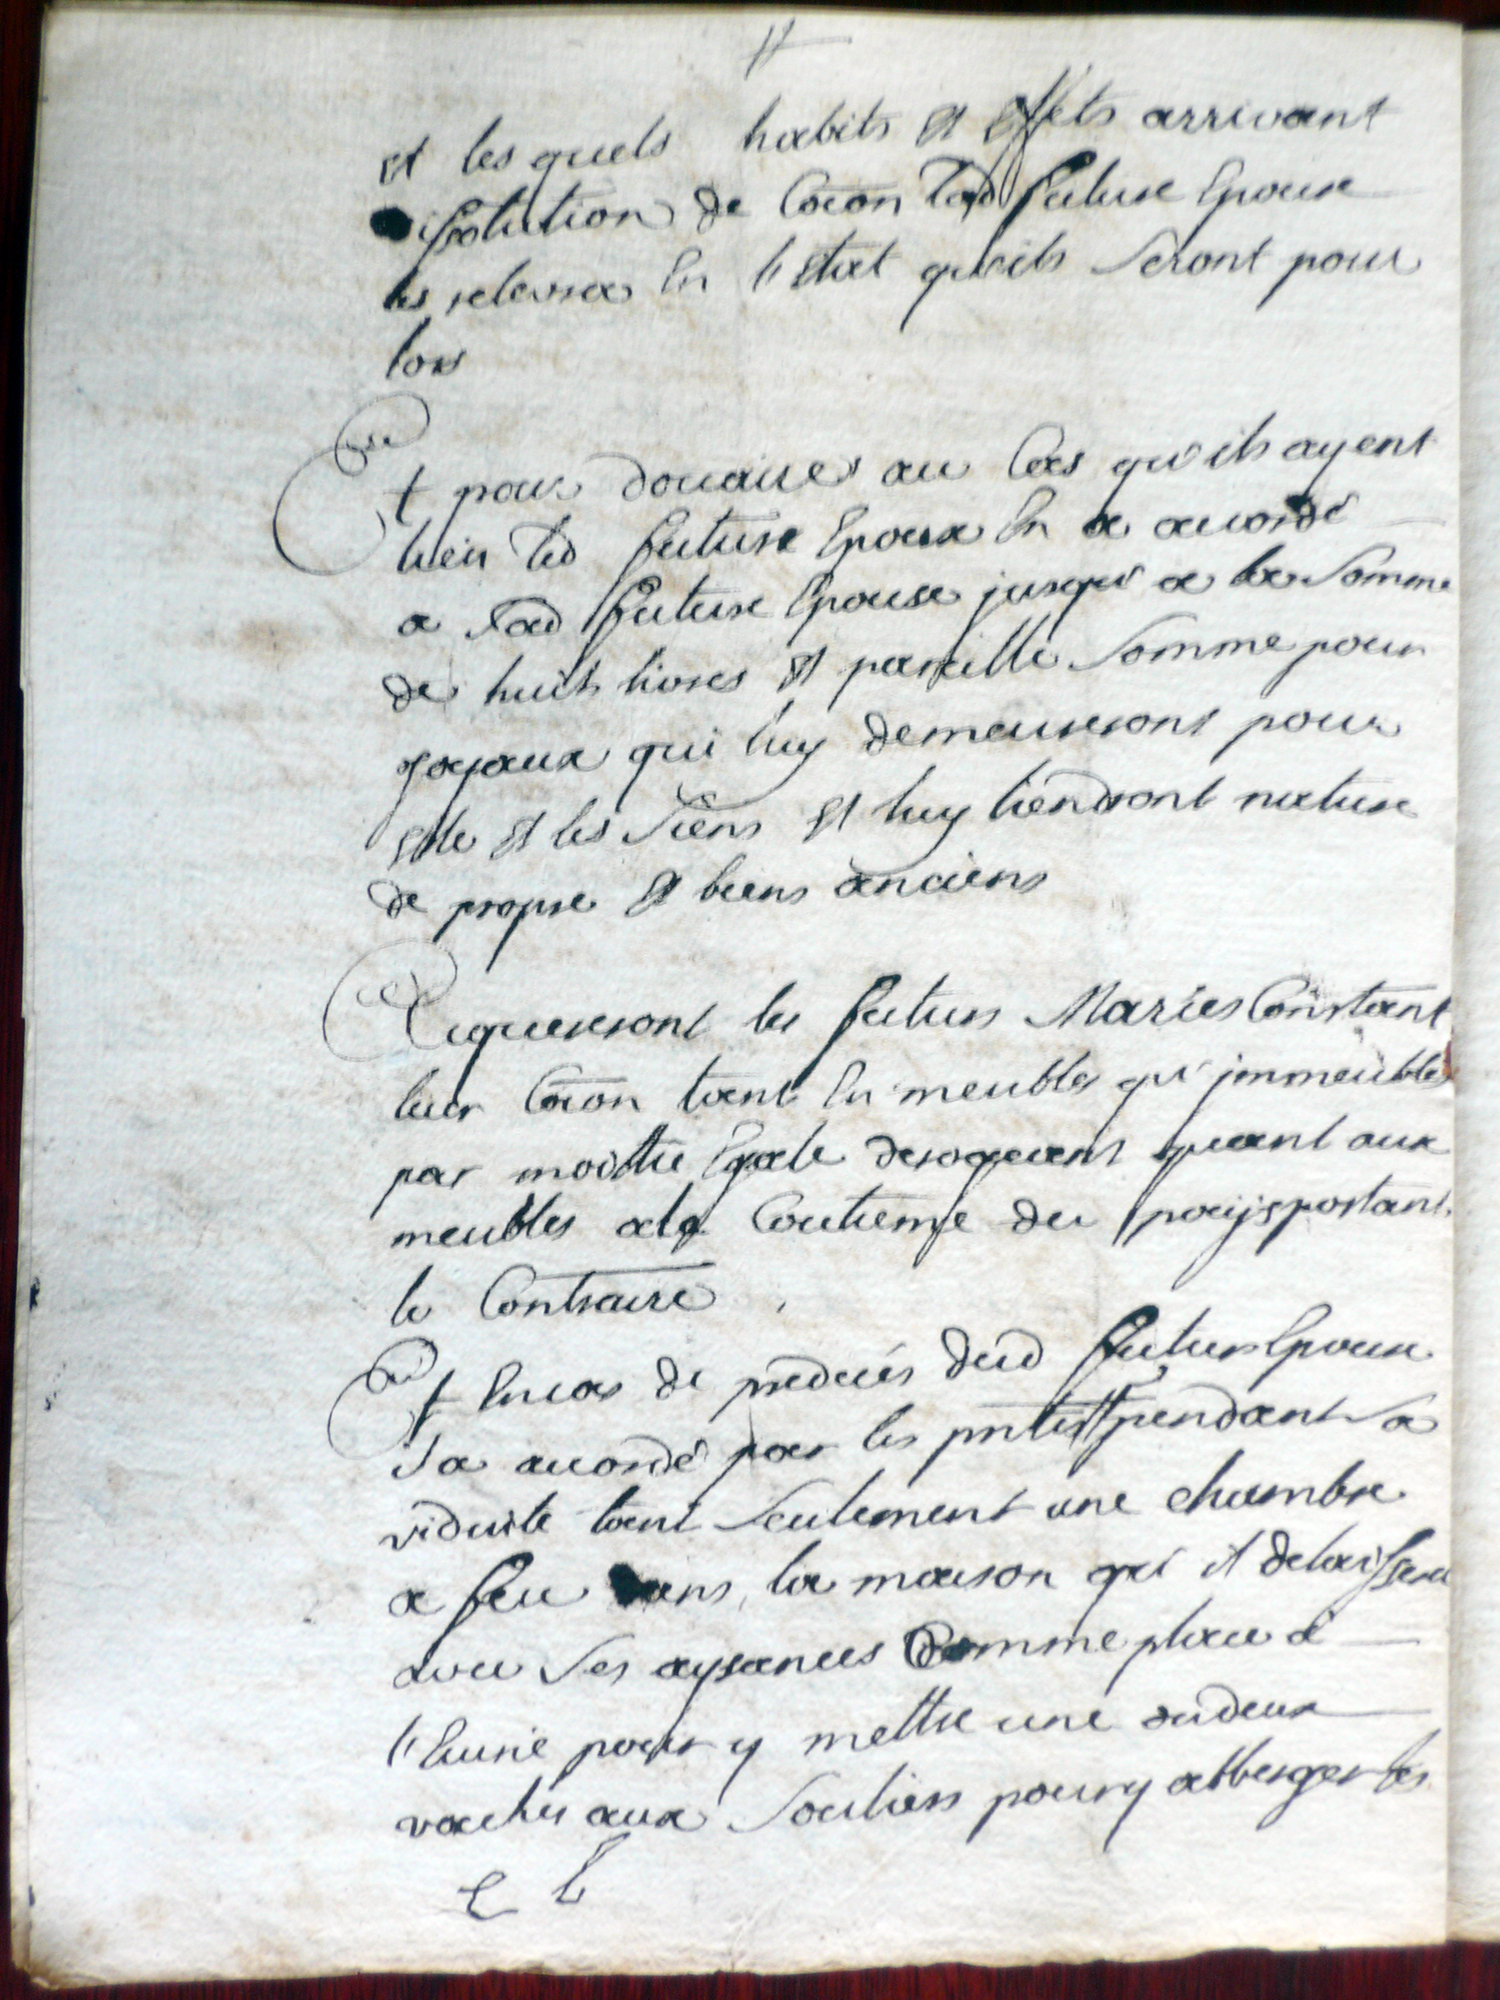 et les quels habits et effets arrivant
dissolution de Coîon lad future Epouse
les relevra En l'Etat qu'ils seront pour
lors
Et pour douaire au Cas qu'ils ayent
lieu led future Epoux En a accordé
a sad future Epouse jusqu'a la somme
de huit livres et pareille somme pour
joyaux qui luy demeureront pour
Elle et les siens et luy tiendront nature
de propre et biens anciens
Aquereront les futurs Mariés Constant
leur Coîon tant En meubles qu'jmmeubles
par moittie Egale derogeant quant aux
meubles ala Coutume du pays portant
le Contraire
Et Encas de predeces dud futur Epoux
il a accordé par les pntes pendant sa
viduité tant seulement une chambre
a feu dans la maison qu'il delaissera
avec ses aysances Comme place a
l'Ecurie pour y mettre une oudeux
vaches aux Souliers pour y alberger les